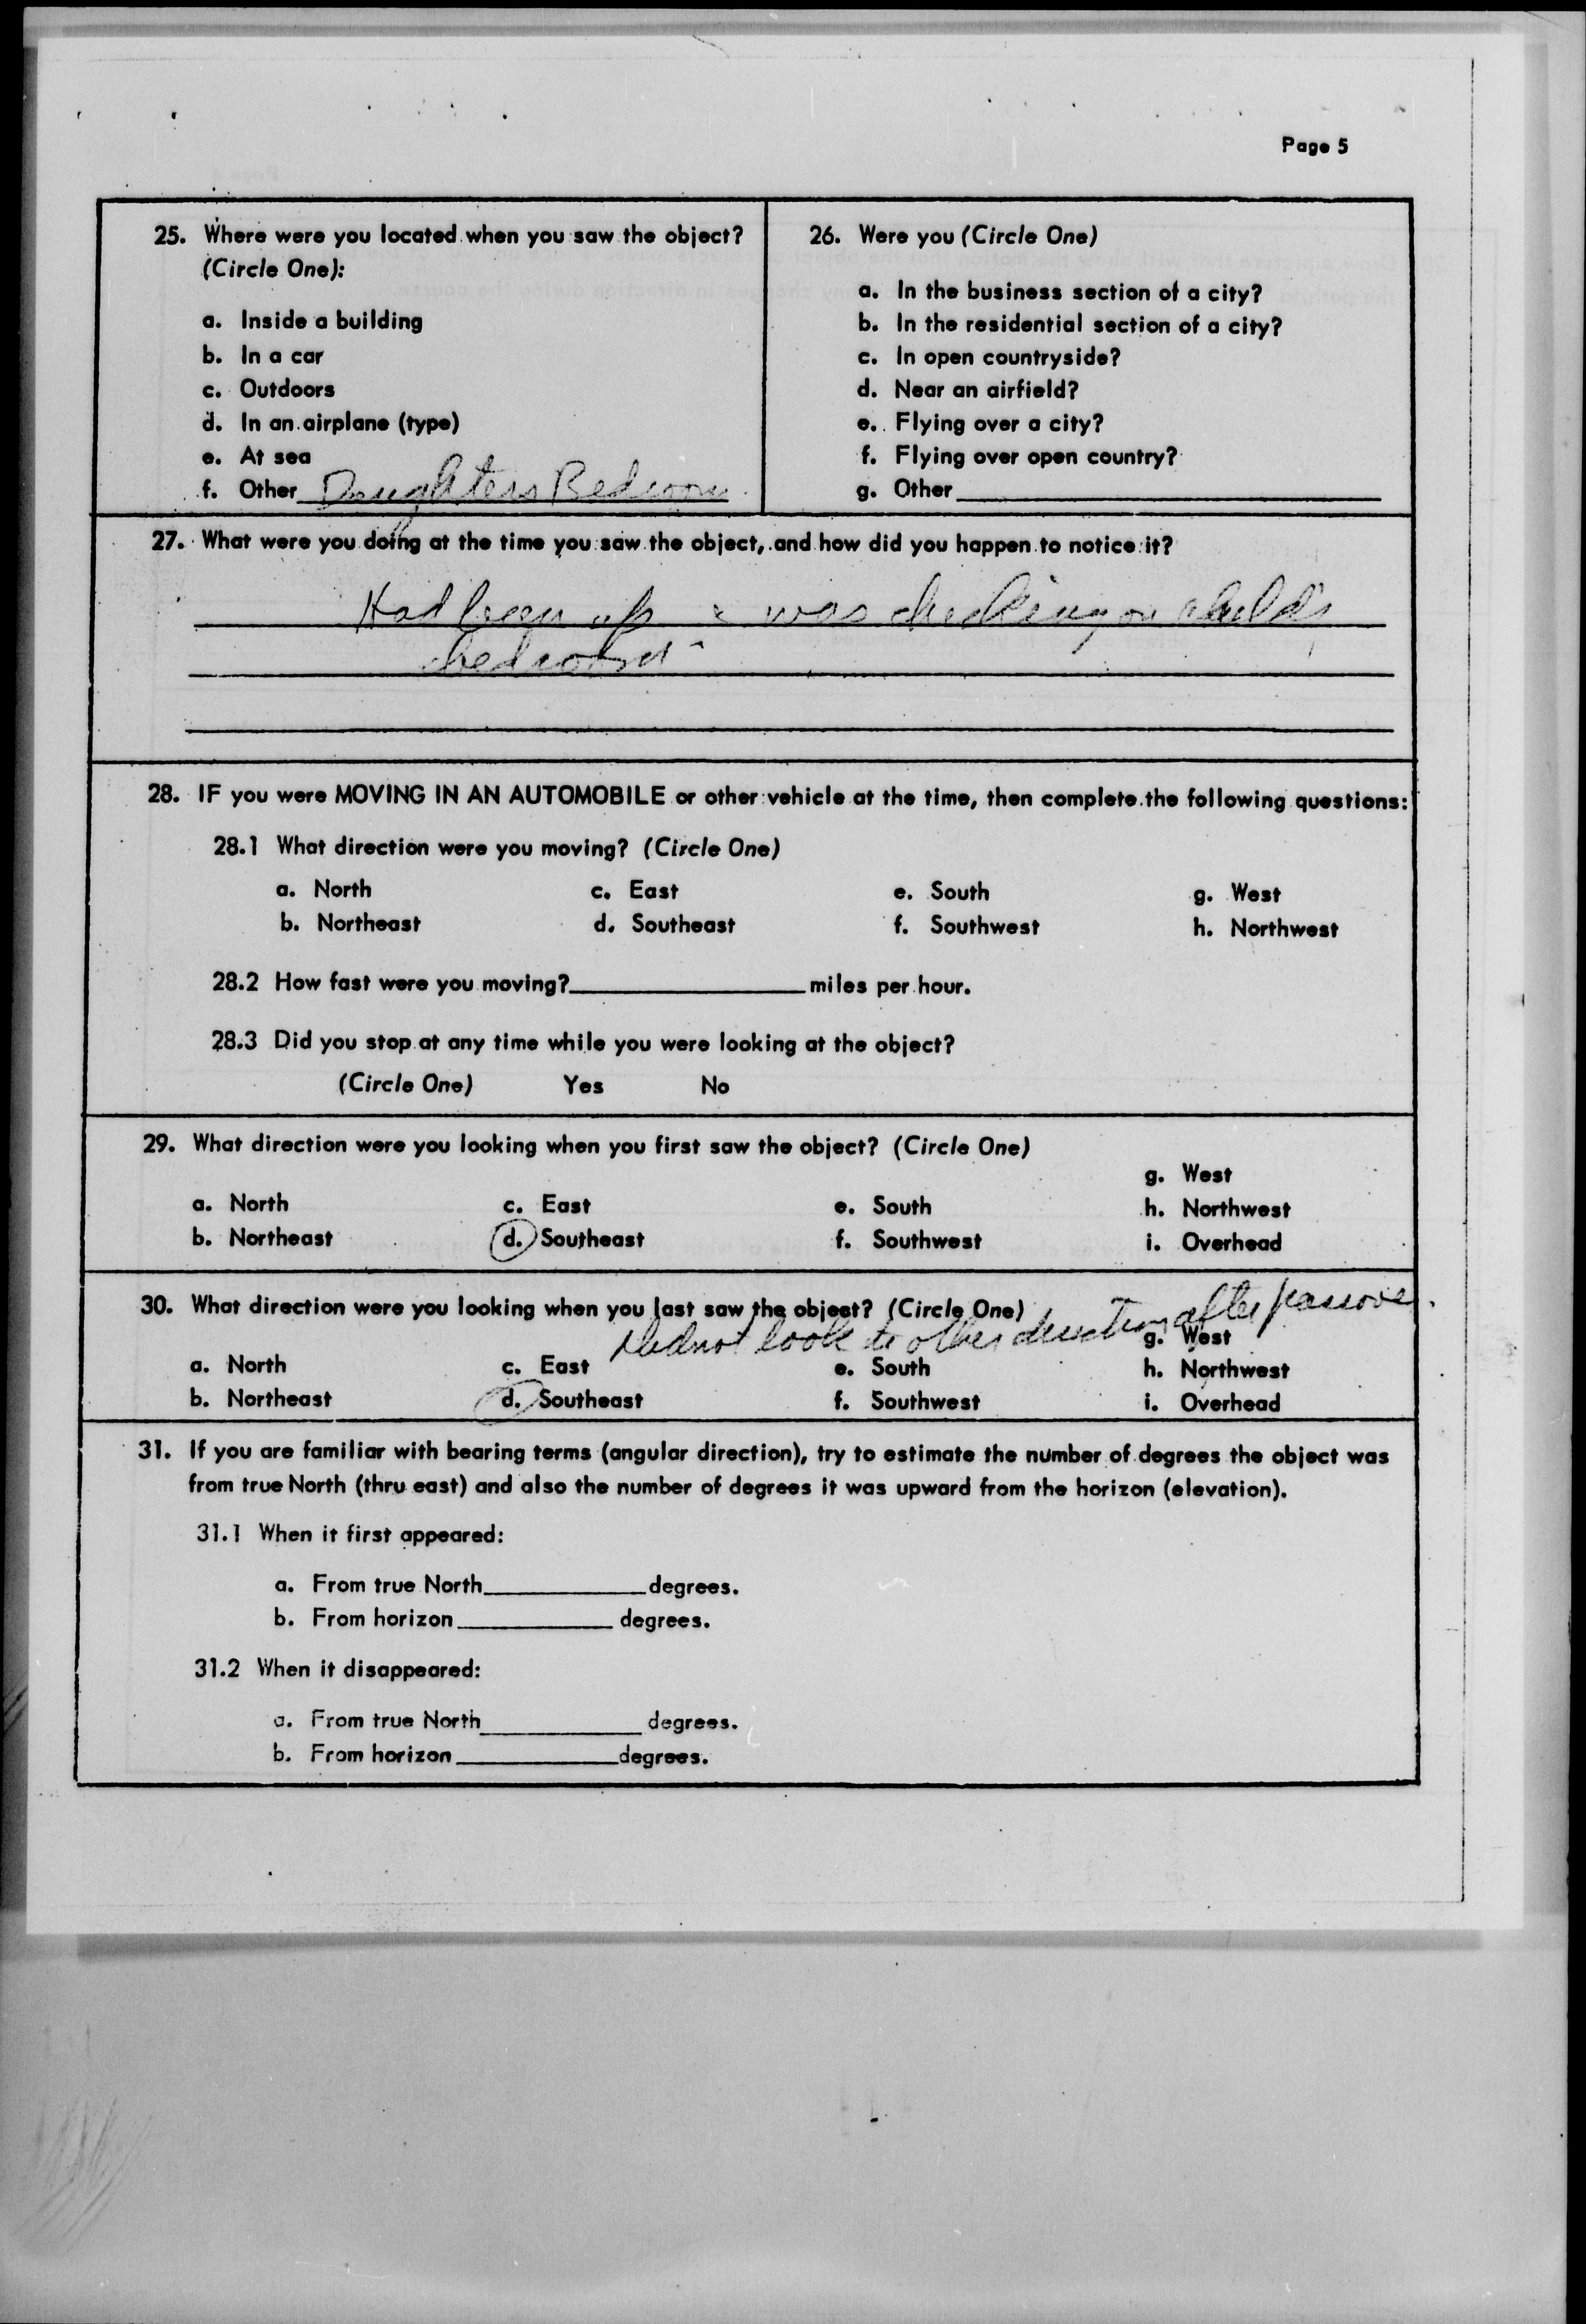 Page 5
25. Where were you located when you saw the object?
(Circle One):
a. Inside a building
b. In a car
c. Outdoors
d. In an airplane (type)
e. At sea
f. Other Daughters Bedroom
26. Were you (Circle One)
a. In the business section of a city?
b. In the residential section of a city?
c. In open countryside?
d. Near an airfield?
e. Flying over a city?
f. Flying over open country?
g. Other
27. What were you doing at the time you saw the object, and how did you happen to notice it?
Had been up & was checking on child's
bedroom
28. IF you were MOVING IN AN AUTOMOBILE or other vehicle at the time, then complete the following questions:
28.1 What direction were you moving? (Circle One)
a. North c. East e. South g. West
b. Northeast d. Southeast f. Southwest h. Northwest
28.2 How fast were you moving? miles per hour.
28.3 Did you stop at any time while you were looking at the object?
(Circle One) Yes No
29. What direction were you looking when you first saw the object? (Circle One)
g. West
a. North c. East e. South h. Northwest
b. Northeast d. Southeast f. Southwest i. Overhead
30. What direction were you looking when you last saw the object? (Circle One)
Did not look to other direction after passover.
g. West
a. North c. East e. South h. Northwest
b. Northeast d. Southeast f. Southwest i. Overhead
31. If you are familiar with bearing terms (angular direction), try to estimate the number of degrees the object was
from true North (thru east) and also the number of degrees it was upward from the horizon (elevation).
31.1 When it first appeared:
a. From true North degrees.
b. From horizon degrees.
31.2 When it disappeared:
a. From true North degrees.
b. From horizon degrees.